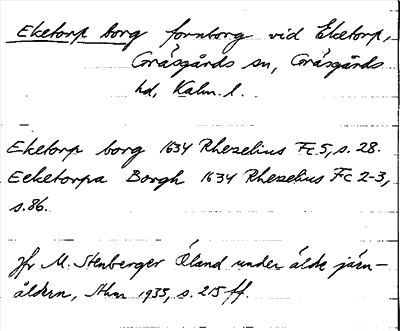 Eketorp borg fornborg vid Eketorp,
Gräsgårds sn, Gräsgårds
hd, Kalm. l.
Eketorp borg 1634 Rhezelius Fc 5, s. 28.
Eeketorpa Borgh 1634 Rhezelius Fc 2-3,
s. 86.
Jfr M. Stenberger Öland under äldre järn-
åldern, Sthm 1933, s. 215 ff.